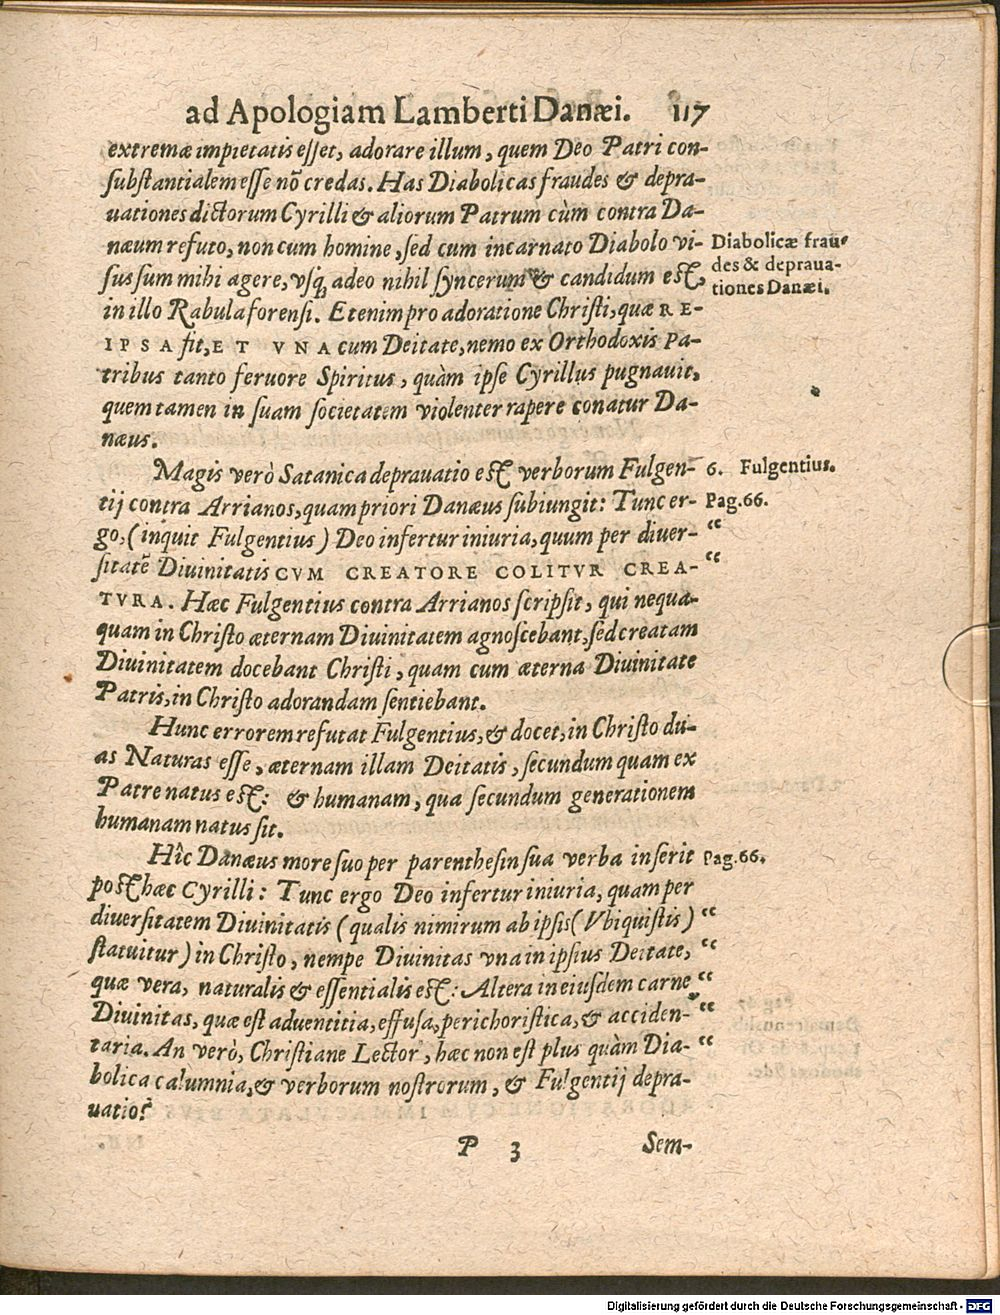 ad Apologiam Lamberti Danæi. 117
extremæ impietatis eſſet, adorare illum, quem Deo Patri con-
ſubſtantialem eſſe nõ credas. Has Diabolicas fraudes & depra-
uationes dictorum Cyrilli & aliorum Patrum cùm contra Da-
næum refuto, non cum homine, ſed cum incarnato Diabolo vi-
ſus ſum mihi agere, vſq; adeo nihil ſyncerum & candidum eſt,
in illo Rabula forenſi. Etenim pro adoratione Christi, quæ RE-
IPSA fit, ET VNA cum Deitate, nemo ex Orthodoxis Pa-
tribus tanto feruore Spiritus, quàm ipſe Cyrillus pugnauit,
quem tamen in ſuam ſocietatem violenter rapere conatur Da-
næus.
Diabolicæ frau-
des & depraua-
tiones Danæi.
Magis verò Satanica deprauatio eſt verborum Fulgen-
tij contra Arrianos, quam priori Danæus ſubiungit: Tunc er-
go, (inquit Fulgentius) Deo infertur iniuria, quum per diuer-
ſitatẽ Diuinitatis CVM CREATORE COLITVR CREA-
TVRA. Hæc Fulgentius contra Arrianos ſcripſit, qui nequa-
quam in Chriſto æternam Diuinitatem agnoſcebant, ſed creatam
Diuinitatem docebant Chriſti, quam cum æterna Diuinitate
Patris, in Chriſto adorandam ſentiebant.
6. Fulgentius.
Pag. 66.
“
“
Hunc errorem refutat Fulgentius, & docet, in Chriſto du-
as Naturas eſſe, æternam illam Deitatis, ſecundum quam ex
Patre natus eſt: & humanam, qua ſecundum generationem
humanam natus ſit.
Hîc Danæus more ſuo per parentheſin ſua verba inſerit
poſt hæc Cyrilli: Tunc ergo Deo infertur iniuria, quam per
diuerſitatem Diuinitatis (qualis nimirum ab ipſis (Vbiquiſtis)
ſtatuitur) in Chriſto, nempe Diuinitas vna in ipſius Deitate,
quæ vera, naturalis & eſſentialis eſt: Altera in eiuſdem carne
Diuinitas, quæ eſt aduentitia, effuſa, perichoriſtica, & acciden-
taria. An verò, Chriſtiane Lector, hæc non eſt plus quàm Dia-
bolica calumnia, & verborum noſtrorum, & Fulgentij depra-
uatio?
Pag. 66.
“
“
“
“
“
P 3 Sem-
Digitalisierung gefördert durch die Deutsche Forschungsgemeinschaft - DFG